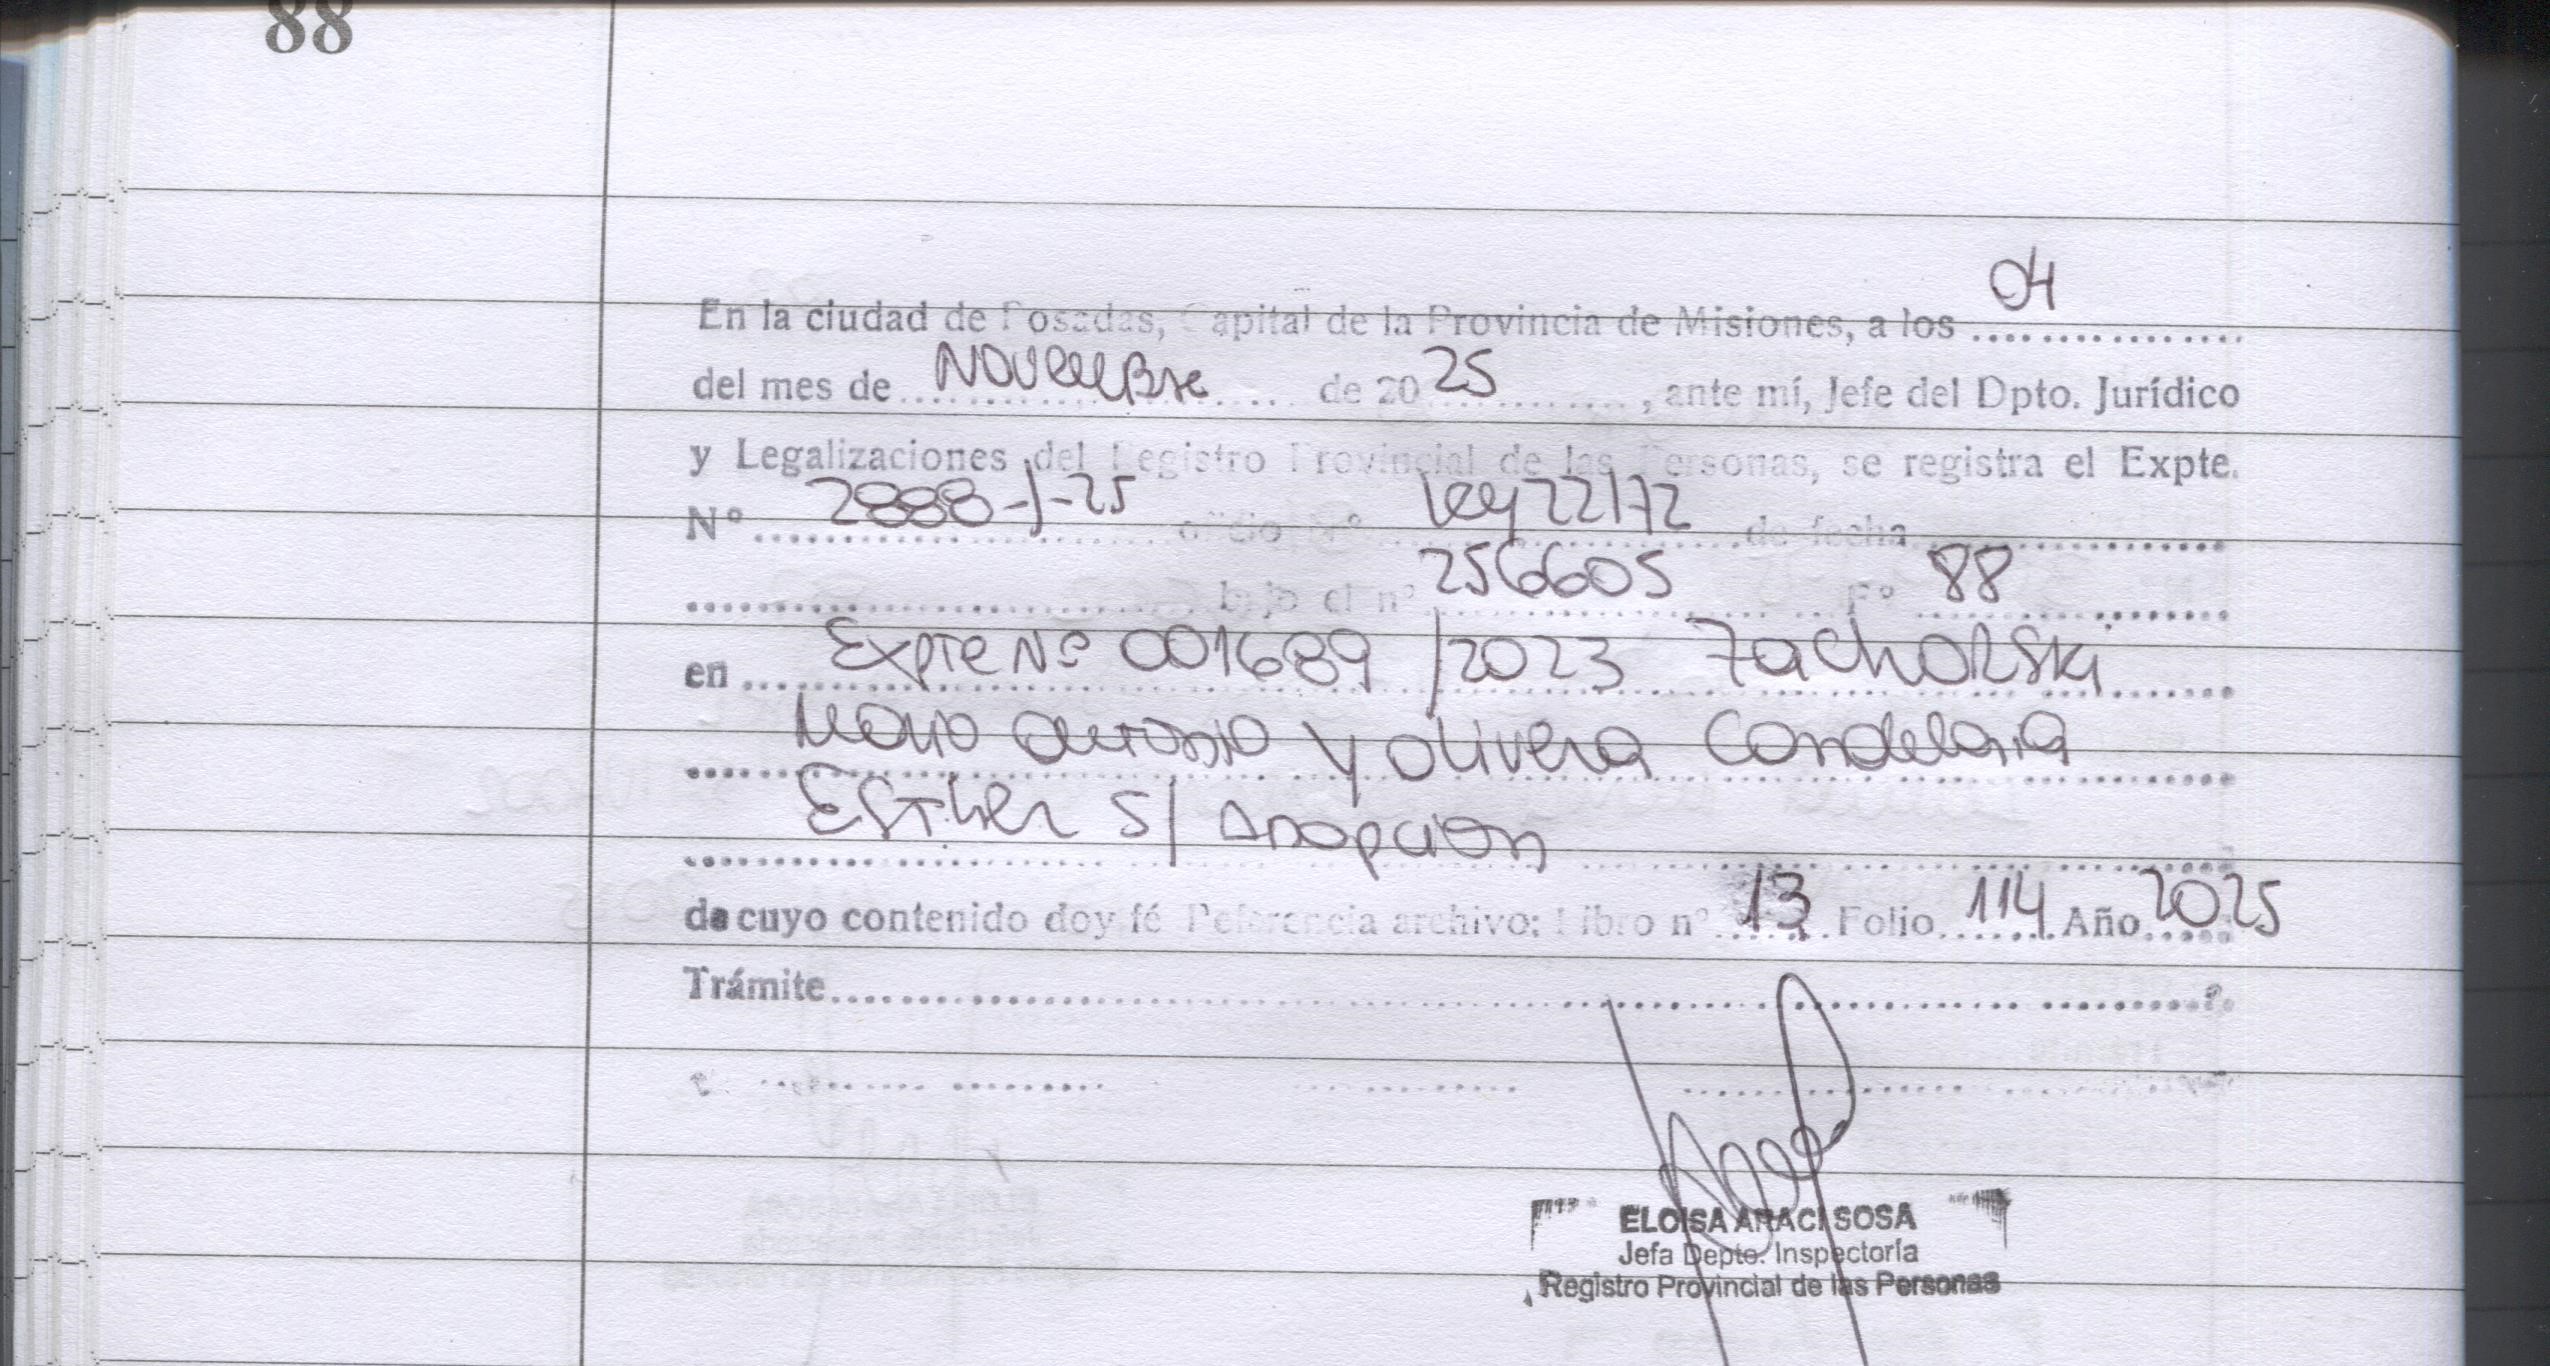 88
En la ciudad de Posadas, Capital de la Provincia de Misiones, a los 04
del mes de Noviembre de 2025, ante mí, Jefe del Dpto. Jurídico
y Legalizaciones del Registro Provincial de las Personas, se registra el Expte.
Nº 2888-J-25 oficio Nº Ley 22172 de fecha
bajo el nº 256605 Fº 88
en Expte Nº 001689/2023 Zachorski
Mario Antonio y Olivera Candelaria
Esther S/ Adopcion
de cuyo contenido doy fé Referencia archivo: Libro nº 13 Folio 114 Año 2025
Trámite
ELOISA ARACI SOSA
Jefa Depto. Inspectoría
Registro Provincial de las Personas